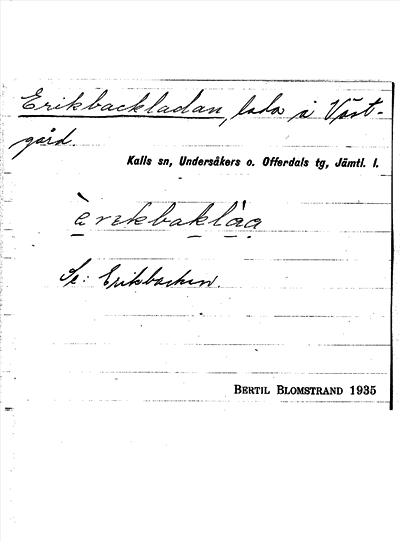 Erikbackladan, lada å Väst-
gård.
Kalls sn, Undersåkers o. Offerdals tg, Jämtl. l.
èrikbaklàa
Se: Erikbacken.
BERTIL BLOMSTRAND 1935